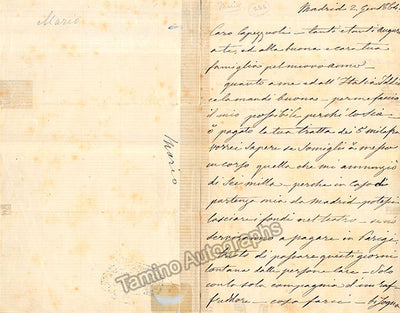 Mario
Madrid 2 Gen 1864
Caro Capezzuoli – tanti e tanti auguri
a te, ed alla buona e cara tua
famiglia pel nuovo anno –
quanto a me ed all'Italia Iddio
ce la mandi buona – per me faccio
il mio possibile perchè lo sia –
ò pagato la tua tratta dei 5 mila fr
vorrei sapere se Semigli à messo
in corpo quella che mi annunziò
di sei milla – perchè in caso di
partenza mia da Madrid potessi
lasciare i fondi nel teatro –
a pagare in Parigi
di passare questi giorni
lontana dalle persone care – solo
con la sola compagnia d'un raf
freddore – cosa farci – bisogna
Mario
Tamino Autographs